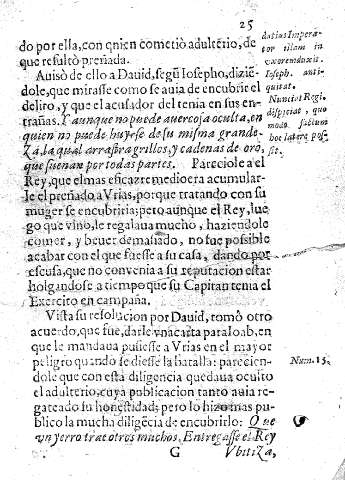 25
do por ella, con quien cometiò adulterio, de
que resultò preñada.
Avisò de ello a Dauid, segũ Iosepho, diziẽ-
dole, que mirasse como se auia de encubrir el
delito, y que el acusador del tenia en sus en-
trañas. Y aunque no puede auer cosa oculta, en
quien no puede huyr se de su misma grande-
za, la qual arrastra grillos, y cadenas de oro,
que suenan por todas partes. Pareciole a el
Rey, que el mas eficaz remedio era acumular-
le el preñado a Vrias, porque tratando con su
muger se encubriria; pero aunque el Rey, lue
go que vino, le regalaua mucho, haziendole
comer, y beuer demasiado, no fue possible
acabar con el que fuesse a su casa, dando por
escusa, que no conuenia a su reputacion estar
holgandose a tiempo que su Capitan tenia el
Exercito en campaña.
Vista su resolucion por Dauid, tomò otro
acuerdo, que fue, darle vna carta para Ioab, en
que le mandaua pusiesse a Vrias en el mayor
peligro quando se diesse la batalla: parecien-
dole que con esta diligencia quedaua oculto
el adulterio, cuya publicacion tanto auia re-
gateado su honestidad; pero lo hizo mas pu
blico la mucha diligẽcia de encubrirlo: Que
vn yerro trae otros muchos. Entregasse el Rey
G Vbitiza,
datius Impera-
tor illam in
vxorem duxit.
Ioseph. anti-
quitat.
Nunciat Regi,
dispiciat, quo
modo factum
hoc latere pos-
sit.
Num. 15.